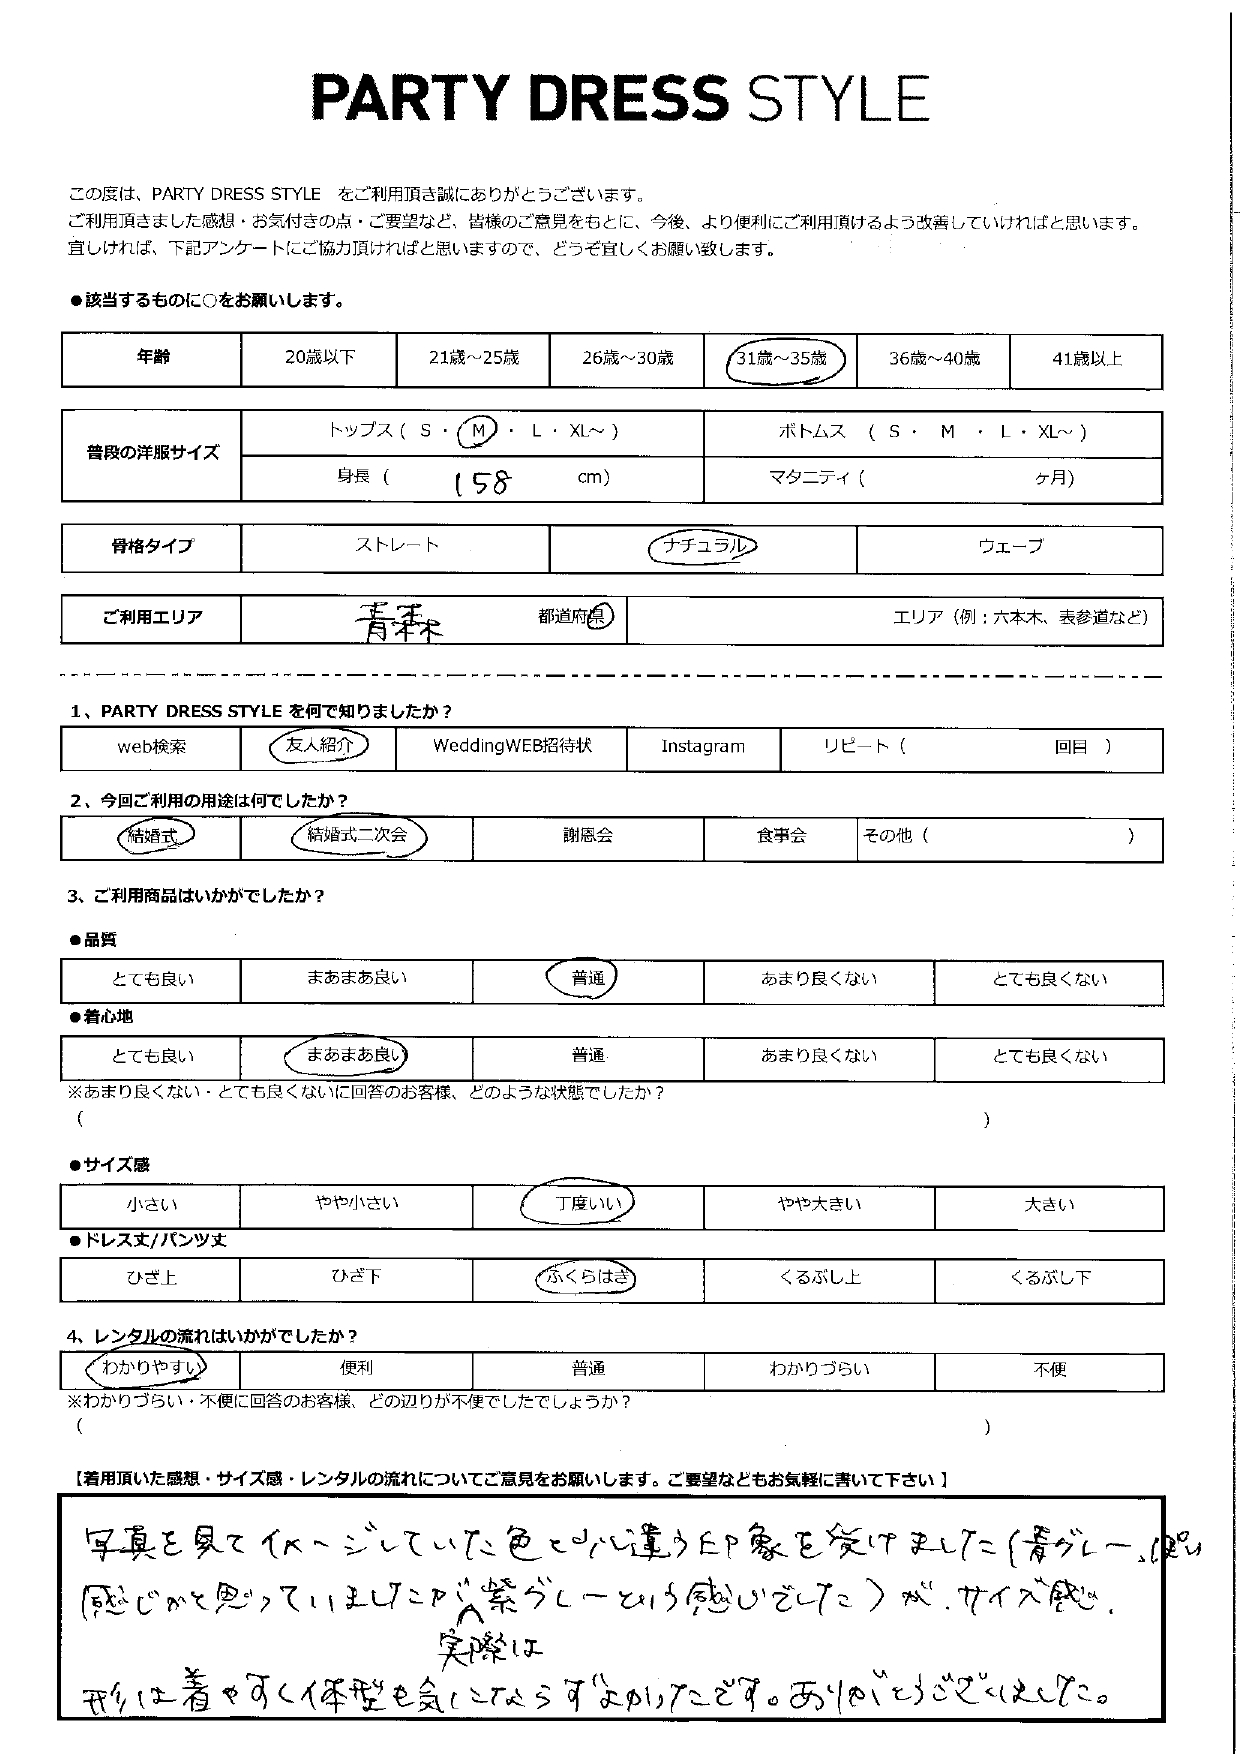 PARTY DRESS STYLE
この度は、PARTY DRESS STYLE をご利用頂き誠にありがとうございます。
ご利用頂きました感想・お気付きの点・ご要望など、皆様のご意見をもとに、今後、より便利にご利用頂けるよう改善していければと思います。
宜しければ、下記アンケートにご協力頂ければと思いますので、どうぞ宜しくお願い致します。
●該当するものに○をお願いします。
年齢 20歳以下 21歳～25歳 26歳～30歳 31歳～35歳 36歳～40歳 41歳以上
普段の洋服サイズ トップス ( S ・ M ・ L ・ XL～ ) ボトムス ( S ・ M ・ L ・ XL～ )
身長 ( 158 cm) マタニティ ( ヶ月)
骨格タイプ ストレート ナチュラル ウェーブ
ご利用エリア 青森 都道府県 エリア（例：六本木、表参道など）
1、PARTY DRESS STYLE を何で知りましたか？
web検索 友人紹介 WeddingWEB招待状 Instagram リピート ( 回目 )
2、今回ご利用の用途は何でしたか？
結婚式 結婚式二次会 謝恩会 食事会 その他 ( )
3、ご利用商品はいかがでしたか？
●品質
とても良い まあまあ良い 普通 あまり良くない とても良くない
●着心地
とても良い まあまあ良い 普通 あまり良くない とても良くない
※あまり良くない・とても良くないに回答のお客様、どのような状態でしたか？
( )
●サイズ感
小さい やや小さい 丁度いい やや大きい 大きい
●ドレス丈/パンツ丈
ひざ上 ひざ下 ふくらはぎ くるぶし上 くるぶし下
4、レンタルの流れはいかがでしたか？
わかりやすい 便利 普通 わかりづらい 不便
※わかりづらい・不便に回答のお客様、どの辺りが不便でしたでしょうか？
( )
【着用頂いた感想・サイズ感・レンタルの流れについてご意見をお願いします。ご要望などもお気軽に書いて下さい】
写真を見てイメージしていた色と少し違う印象を受けました(青グレーっぽい
感じかと思っていましたが紫グレーという感じでした)が、サイズ感、
実際は
形は着やすく体型も気にならずよかったです。ありがとうございました。